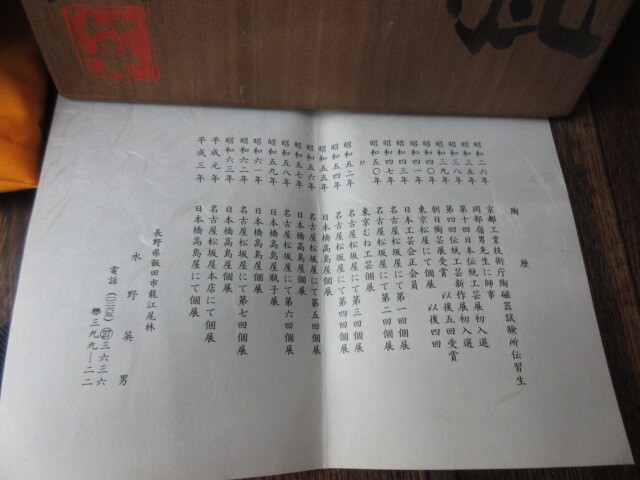 陶歴
昭和二六年 京都工業技術庁陶磁器試験所伝習生
昭和三五年 岡部嶺男先生に師事
昭和三八年 第十回日本伝統工芸展初入選
昭和三九年 第四回伝統工芸新作展初入選
昭和四〇年 朝日陶芸展受賞 以後五回受賞
昭和四一年 東京松屋にて個展 以後四回
昭和四三年 日本工芸会正会員
昭和四七年 名古屋松坂屋にて第一回個展
昭和五〇年 名古屋松坂屋にて第二回個展
〃 東京むね工芸個展
昭和五二年 名古屋松坂屋にて第三回個展
昭和五四年 名古屋松坂屋にて第四回個展
昭和五五年 日本橋高島屋個展
昭和五六年 名古屋松坂屋にて第五回個展
昭和五七年 日本橋高島屋にて個展
昭和五八年 名古屋松坂屋にて第六回個展
昭和五九年 日本橋高島屋瓶子展
昭和六一年 日本橋高島屋個展
昭和六二年 名古屋松坂屋にて第七回個展
昭和六三年 日本橋高島屋個展
平成元年 名古屋松坂屋本店にて個展
平成三年 日本橋高島屋にて個展
長野県飯田市龍江尾林
水野英男
電話(〇二六五)㉗三六三六
三九九―二二